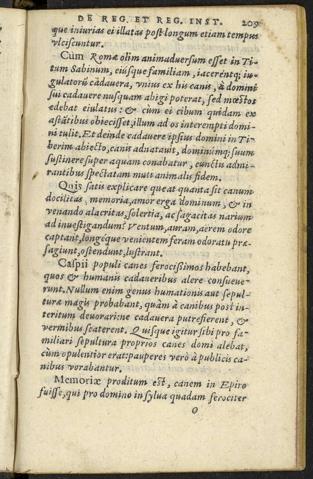 DE REG. ET REG. INST. 209
que iniurias ei illatas post longum etiam tempus
vlciscuntur.
Cùm Romæ olim animaduersum esset in Ti-
tum Sabinum, eiúsque familiam, iacerentq; iu-
gulatorũ cadauera, vnius ex his canis, à domini
sui cadauere nusquam abigi poterat, sed mœstos
edebat eiulatus: & cùm ei cibum quidam ex
astãtibus obiecisset, illum ad os interempti domi-
ni tulit. Et deinde cadauere ipsius domini in Ti-
berim abiecto, canis adnatauit, dominúmq; suum
sustinere super aquam conabatur, cunctis admi-
rantibus spectatam muti animalis fidem.
Quis satis explicare queat quanta sit canum
docilitas, memoria, amor erga dominum, & in
venando alacritas, solertia, ac sagacitas narium
ad inuestigandum? Ventum, auram, aerem odore
captant, longéque venientem feram odoratu præ-
sagiunt, ostendunt, lustrant.
Caspii populi canes ferocissimos habebant,
quos & humanis cadaueribus alere consueue-
runt. Nullum enim genus humationis aut sepul-
turæ magis probabant, quàm à canibus post in-
teritum deuorari: ne cadauera putrefierent, &
vermibus scaterent. Quisque igitur sibi pro fa-
miliari sepultura proprios canes domi alebat,
cùm opulentior erat: pauperes verò à publicis ca-
nibus vorabantur.
Memoriæ proditum est, canem in Epiro
fuisse, qui pro domino in sylua quadam ferociter
O